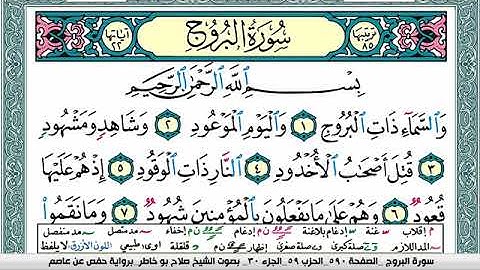 ترتيبها ٨٥ سُورَةُ البُرُوجِ آياتها ٢٢
بِسْمِ ٱللَّهِ ٱلرَّحْمَٰنِ ٱلرَّحِيمِ
وَٱلسَّمَآءِ ذَاتِ ٱلْبُرُوجِ ١ وَٱلْيَوْمِ ٱلْمَوْعُودِ ٢ وَشَاهِدٍ وَمَشْهُودٍ
٣ قُتِلَ أَصْحَٰبُ ٱلْأُخْدُودِ ٤ ٱلنَّارِ ذَاتِ ٱلْوَقُودِ ٥ إِذْ هُمْ عَلَيْهَا
قُعُودٌ ٦ وَهُمْ عَلَىٰ مَا يَفْعَلُونَ بِٱلْمُؤْمِنِينَ شُهُودٌ ٧ وَمَا نَقَمُوا۟
م إقلاب غنة إدغام بلاغنة إدغام إخفاء مد منفصل مد متصل
المد اللازم صلة كبرى صلة صغرى إظهار قلقلة طبيعي اللون الأزرق لا يلفظ
سورة البروج _الصفحة ٥٩٠_الحزب ٥٩_الجزء ٣٠_ بصوت الشيخ صلاح بو خاطر_ برواية حفص عن عاصم